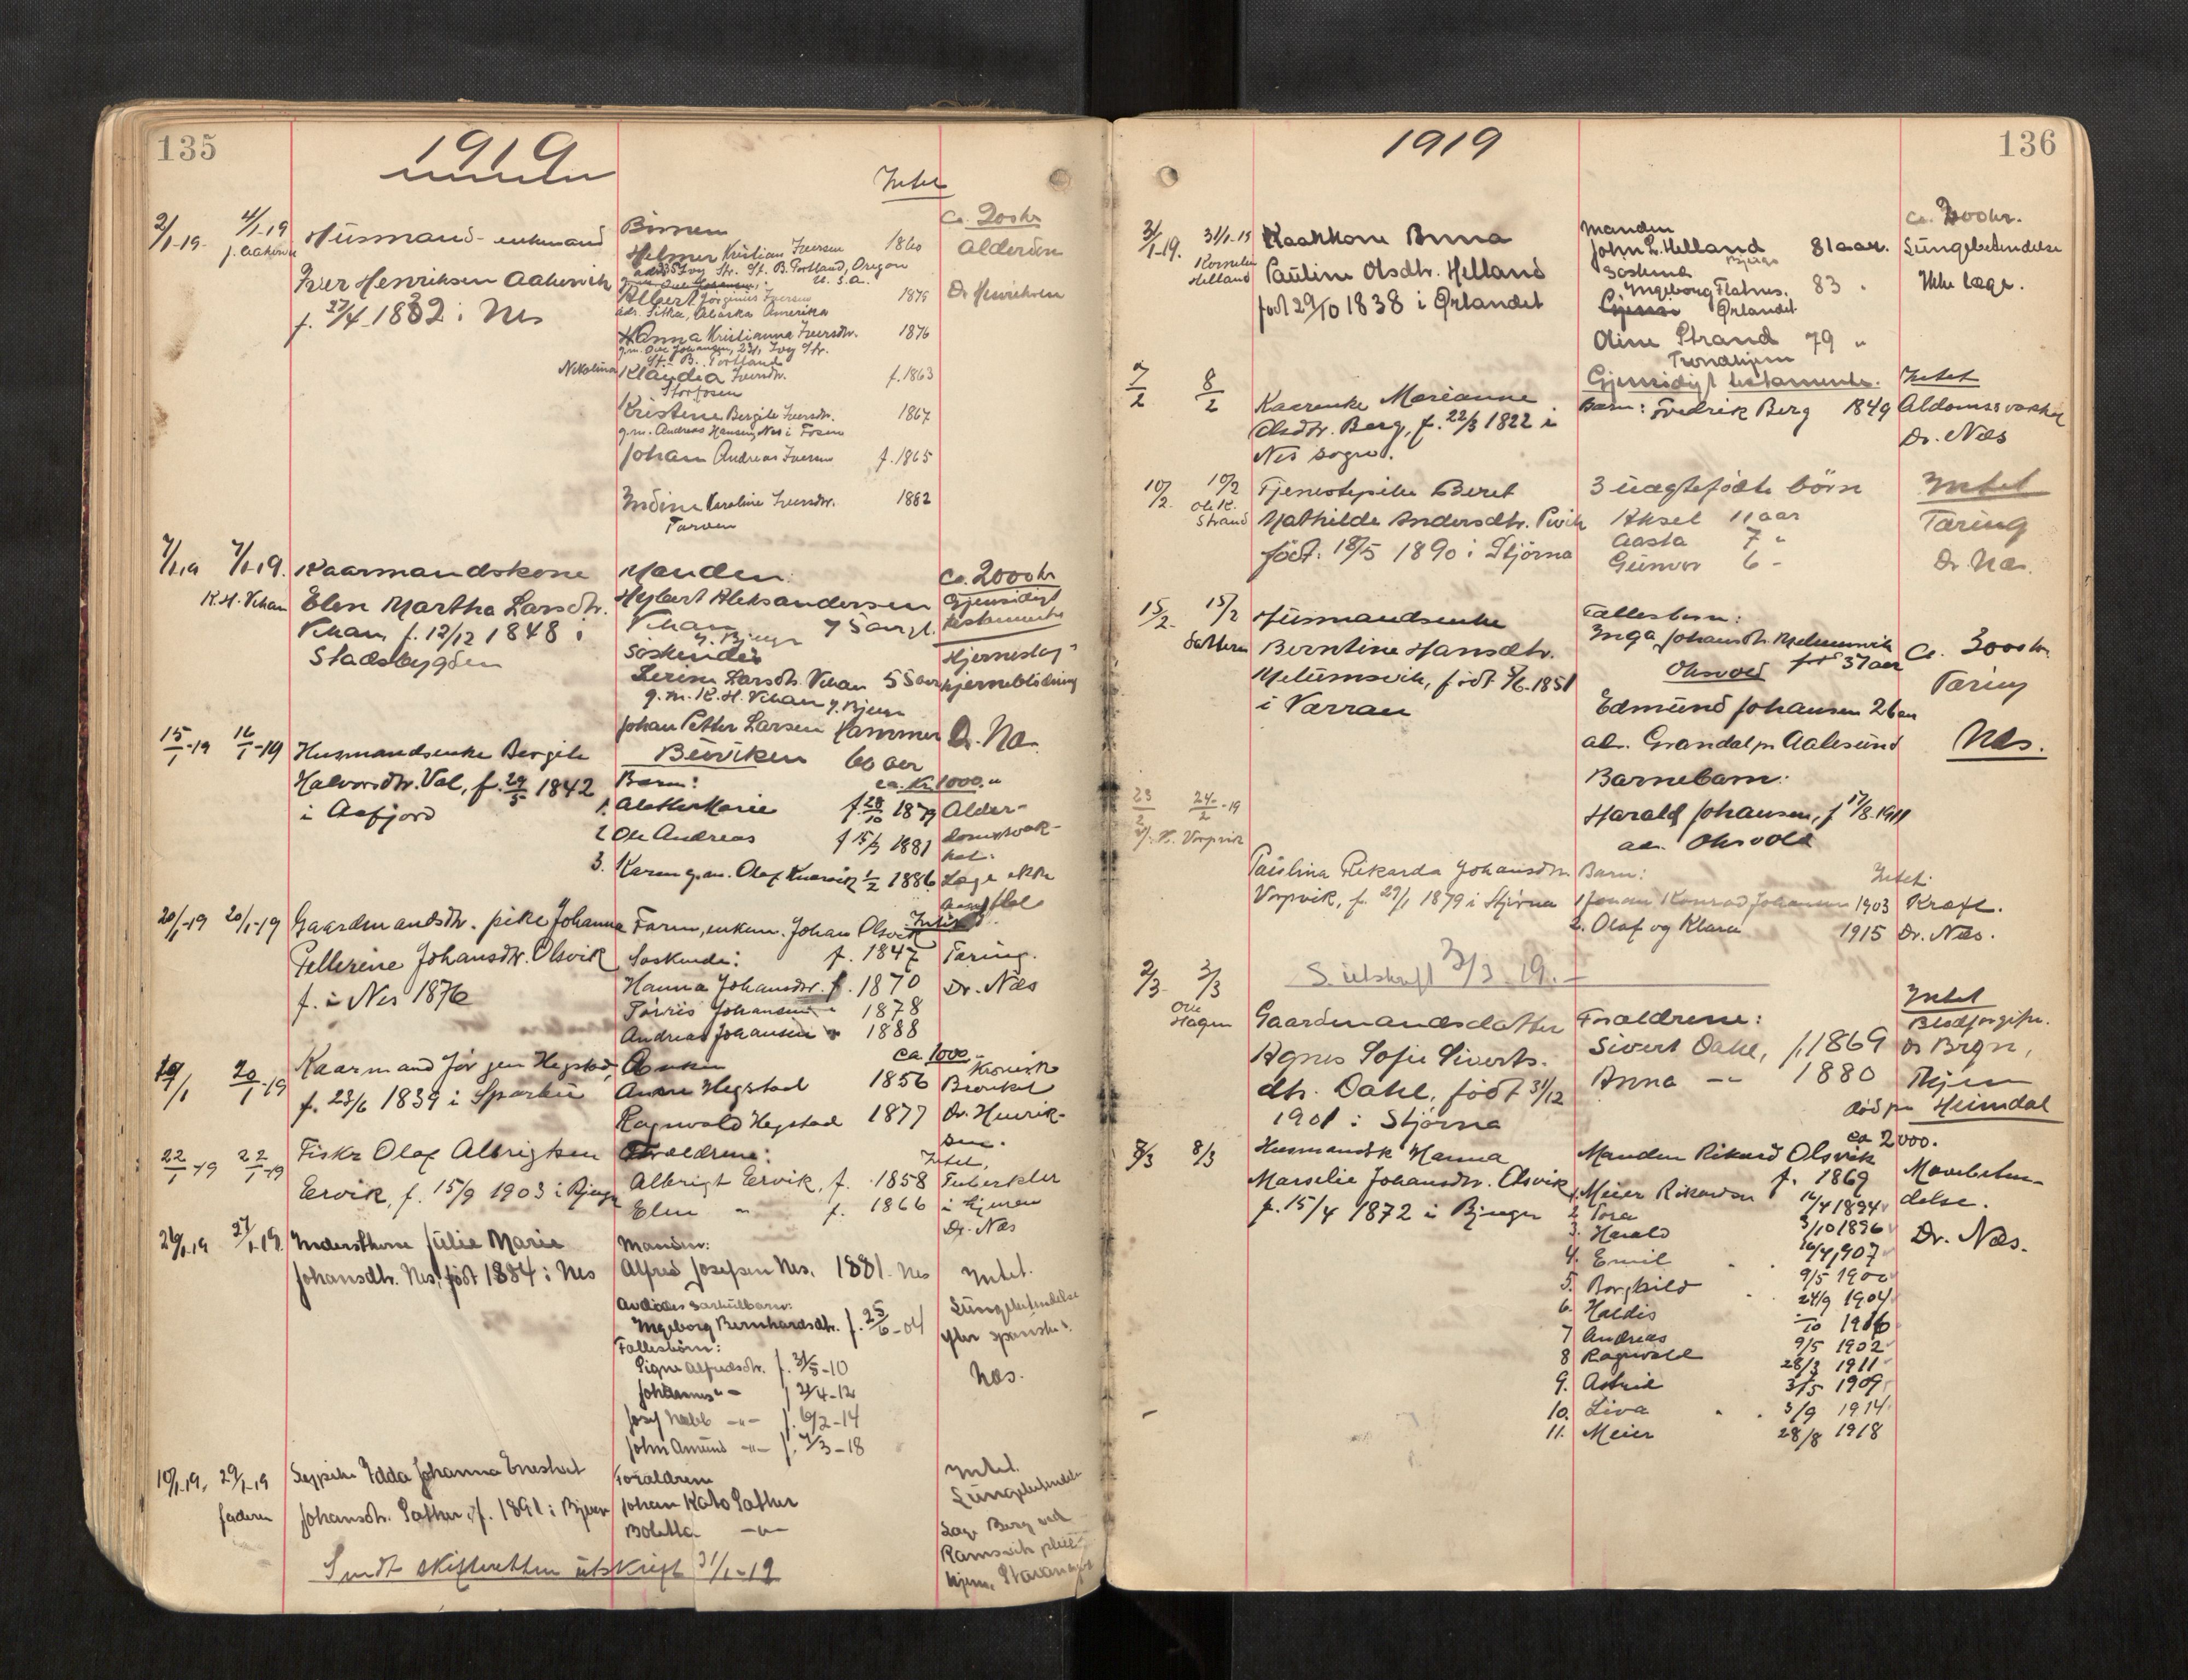 135
1919
Intet
2/1-19. 4/1-19 Husmand-enkemand
J. Aakervik
Iver Henriksen Aakervik
f. 27/4 1832 i Nes
Børnene
Helmer Kristian Iversen 1860
Str. St. B. Portland, Oregon
U. S. A.
Albert Jørginus Iversen 1875
adr. Sitka, Alaska Amerika
Hanna Kristianna Iversdtr. 1876
g.m. Ole Johansen, 231, Ivy Str.
St. B. Portland
Nikolina Klaudia Iversdtr. f. 1863
Storfosen
Kristine Bergite Iversdtr. 1867
g.m. Andreas Hansen, Nes i Fosen
Johan Andreas Iversen f. 1865
Indine Karoline Iversdtr. 1882
Tarven
Ca. 200 kr
Alderdom
Dr Henriksen
7/1.19 7/1.19. Kaarmandskone
K. H. Vehan Elen Martha Larsdtr.
Vehan, f. 12/12 1848 i
Stadsbygden
Manden:
Hylbert Aleksandersen
Vehan 75 aar gl.
y. Bjugn
Søskende
Serine Larsdtr. Vehan 55 aar
g.m. K. H. Vehan y. Bjugn
Johan Petter Larsen Hammer
Beiviken 60 aar
Ca. 2000 kr
Gjensidigt
testamente
Hjerneslag
hjerneblødning
Dr. Næs
15/1-19 16/1-19 Husmandsenke Bergite
Halvorsdtr. Val, f. 29/5 1842
i Aafjord
Barn:
1. Alette Marie f. 28/10 1879
2 Ole Andreas f 15/3 1881
3. Karen g.m. Olaf Kvarvik 1/2 1886
ca. kr 1000.
Alder-
domssvak-
het.
Læge ikke
20/1-19 20/1-19 Gaardmandsdtr. pike Johanna
Pellerine Johansdtr. Olsvik
f. i Nes 1876
Faren, enkem. Johan Olsvik
f. 1847
Søskende:
Hanna Johansdtr. f. 1870
Tørris Johansen " 1878
Andreas Johansen " 1888
Intet
Tæring.
Dr. Næs
19/1 20/1-19 Kaarmand Jørgen Hegstad,
f. 23/6 1839 i Sparbu
Enken
Anne Hegstad 1856
Ragnvald Hegstad 1877
ca 1000
Kronisk
Bronkit
Dr. Henrik-
sen.
22/1-19 22/1-19 Fisker Olaf Albrigtsen
Ervik, f. 15/9 1903 i Bjugn
Forældrene:
Albrigt Ervik, f. 1858
Elen " f. 1866
Intet.
Tuberkler
i hjernen
Dr. Næs
26/1.19 27/1-19 Inderstkone Julie Marie
Johansdtr. Nes, født 1884 i Nes
Manden:
Alfred Josefsen Nes. 1881. Nes
Avdødes særkulbarn:
Ingeborg Bernhardsdtr. f. 25/6-04
Fællesbørn:
Signe Alfredsdtr. f. 31/5-10
Johannes " - f 21/4-12
Josef -"- f. 6/2-14
John Amund -"- f. 7/3-18
Intet.
Lungebetændelse
efter spanske s.
Næs.
10/1.19, 29/1-19 Sypike Edda Johanna
faderen Johansdtr. Sæther, f. 1891 i Bjugn
Forældrene
Johan Kato Sæther
Boletta -"-
Intet.
Lungebetændelse
Læge Berg ved
Ramsvik pleie-
hjem, Stavanger
Sendt skifteretten utskrift 31/1-19
136
1919
31/1-19. 31/1-19 Kaarkone Anna
Kornelius
Helland Pauline Olsdtr. Helland
født 29/10 1838 i Ørlandet
Manden
John L. Helland 81 aar.
Bjugn
Søskende
Ingeborg Flatnes. 83 "
Ørlandet
Oline Strand 79 "
Trondhjem
Gjensidigt testamente.
Ca. 2000 kr.
Lungebetændelse
Ikke læge.
7/2 8/2 Kaarenke Marianne
Olsdtr. Berg, f. 22/3 1822 i
Nes sogn.
Barn: Fredrik Berg 1849
Intet
Aldomssvakhet
Dr. Næs
10/2. 10/2 Tjenestepike Beret
Ole K.
Strand Mathilde Andersdtr.
født. 18/5 1890 i Stjørna
3 uægtefødte børn
Aksel 11 aar
Aasta 7 "
Gunvor 6 -
Intet
Tæring
Dr. Næs.
15/2. 15/2 Husmandsenke
Datteren Berntine Hansdtr.
Melumsvik, født 5/6-1851
i Værran
Fællesbørn:
Inga Johansdtr. Melumsvik
Oksvold født 37 aar
Edmund Johansen 26 aar
ad. Grandal pr Aalesund
Barnebarn:
Harald Johansen, f 17/8-1911
ad. Oksvold
Ca. 3000 kr.
Tæring
Næs.
23/2 24/2-19
Vorpvik
Paulina Rikarda Johansdtr
Vorpvik, f. 29/1 1879 i Stjørna
Barn:
1 Johan Konrad Johansen 1903
2. Olaf og Klara 1915
Intet.
Kræft.
Dr. Næs.
S. utskrift 3/3 19.
2/3 3/3
Ole
Hagen Gaardmandsdatter
Agnes Sofie Siverts-
dtr. Dahl, født 31/12
1901 i Stjørna
Forældrene:
Sivert Dahl, f. 1869
Anna -"- 1880
Intet
Blodforgiftn.
Dr Brgn,
Thjem
død pr Heimdal
8/3 8/3 Husmandsk Hanna
Marselie Johansdtr. Olsvik
f. 15/4 1872 i Bjugn
Manden Rikard Olsvik
f. 1869
1. Meier Rikardsen 16/4 1894
2 Tora 3/10 1896
3. Harald 16/4 1907
4. Emil 9/5 1900
5. Borghild 24/9 1904
6. Haldis /10 1906
7 Andreas 9/5 1902
8 Ragnvald 28/3 1911
9. Astrid 3/5 1909
10. Liva 3/9 1914
11. Meier 28/8 1918
ca 2000.
Mavebetæn-
delse.
Dr. Næs.